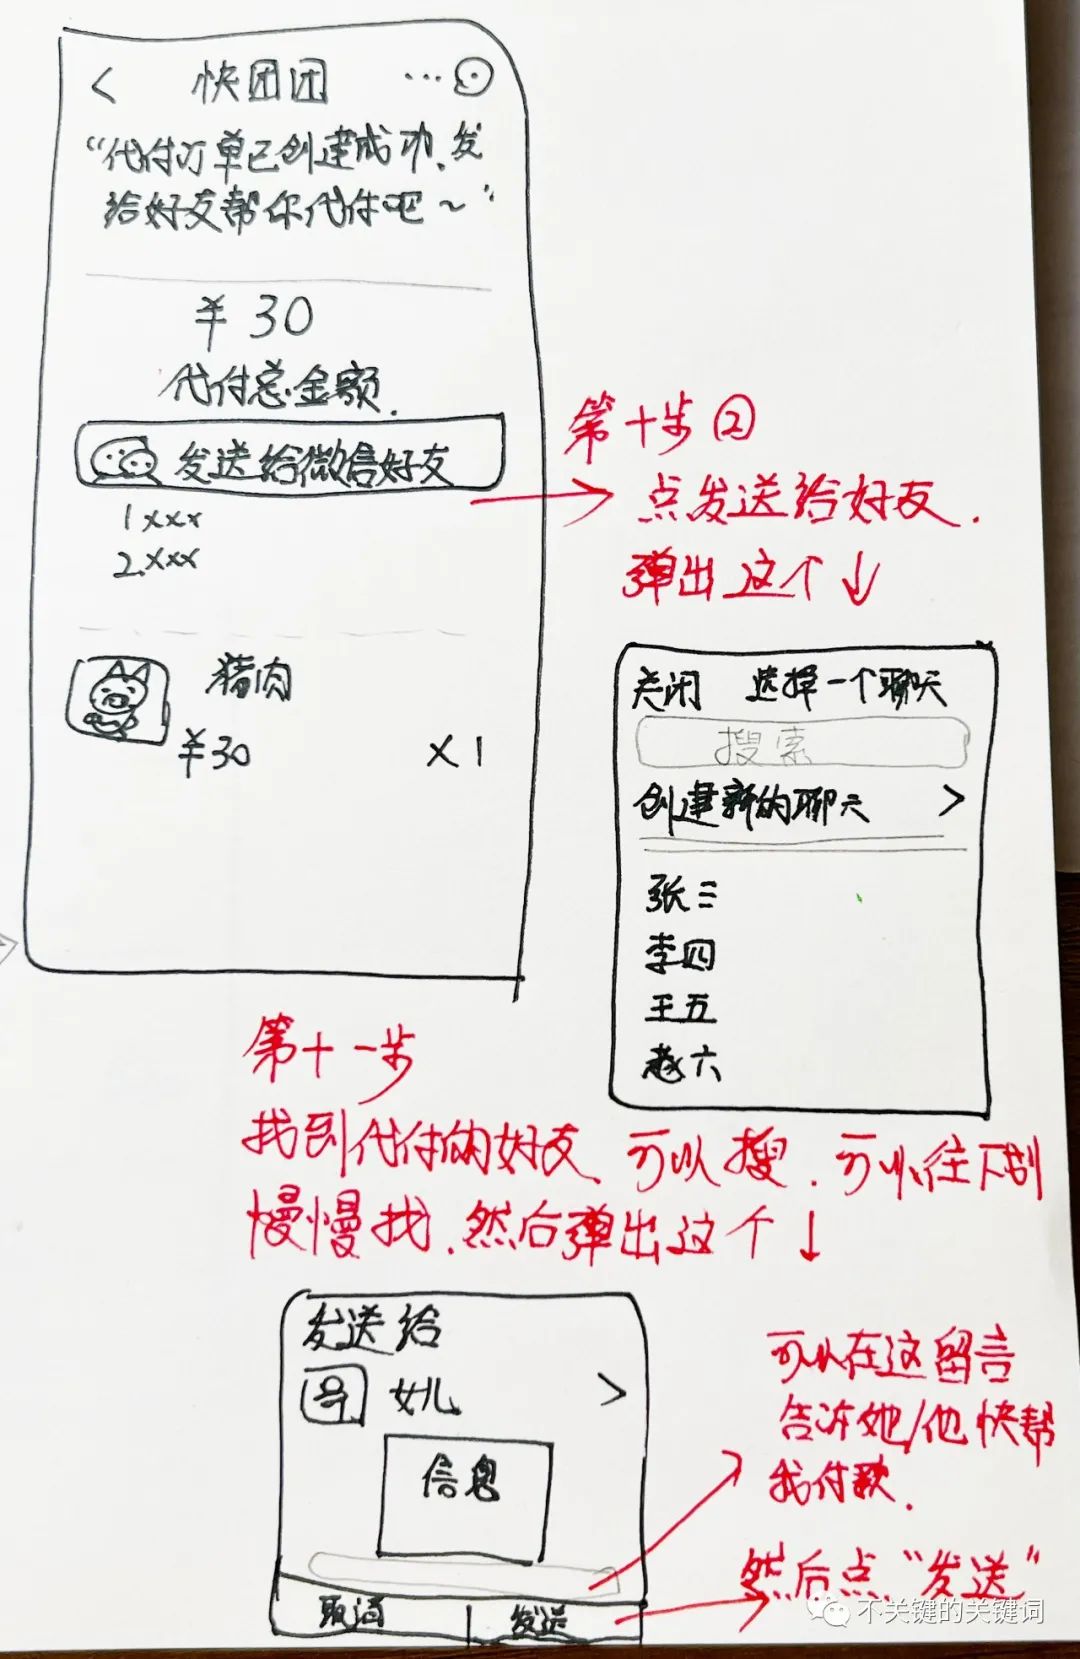 < 快团团 ...
“代付订单已创建成功，发
给好友帮你代付吧～”
¥ 30
代付总金额.
发送给微信好友
1 xxx
2.xxx
猪肉
¥30 x1
第十步②
点发送给好友.
弹出这个↓
关闭 选择一个聊天
搜索
创建新的聊天 >
张三
李四
王五
赵六
第十一步
找到代付的好友、可以搜．可以往下划
慢慢找．然后弹出这个↓
发送给
女儿 >
信息
取消 发送
可以在这留言
告诉她/他快帮
我付款．
然后点“发送”
不关键的关键词